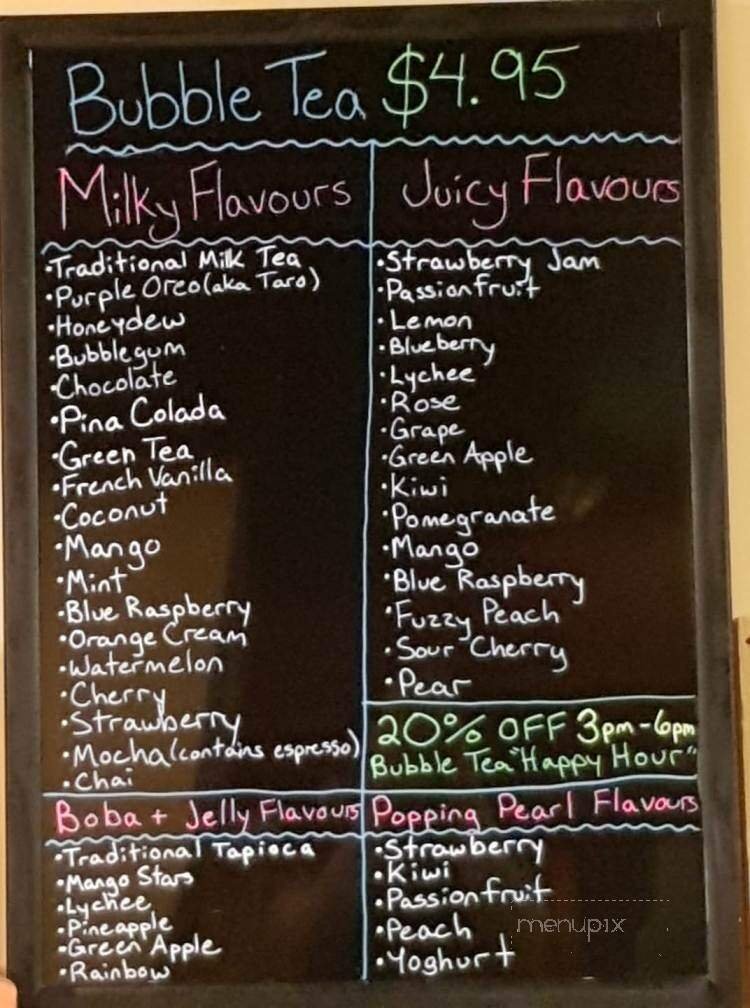 Bubble Tea $4.95
Milky Flavours
•Traditional Milk Tea
•Purple Oreo (aka Taro)
•Honeydew
•Bubblegum
•Chocolate
•Pina Colada
•Green Tea
•French Vanilla
•Coconut
•Mango
•Mint
•Blue Raspberry
•Orange Cream
•Watermelon
•Cherry
•Strawberry
•Mocha (contains espresso)
•Chai
Juicy Flavours
•Strawberry Jam
•Passionfruit
•Lemon
•Blueberry
•Lychee
•Rose
•Grape
•Green Apple
•Kiwi
•Pomegranate
•Mango
•Blue Raspberry
•Fuzzy Peach
•Sour Cherry
•Pear
20% OFF 3pm-6pm
Bubble Tea "Happy Hour"
Boba + Jelly Flavours
•Traditional Tapioca
•Mango Stars
•Lychee
•Pineapple
•Green Apple
•Rainbow
Popping Pearl Flavours
•Strawberry
•Kiwi
•Passionfruit
•Peach
•Yoghurt
menupix